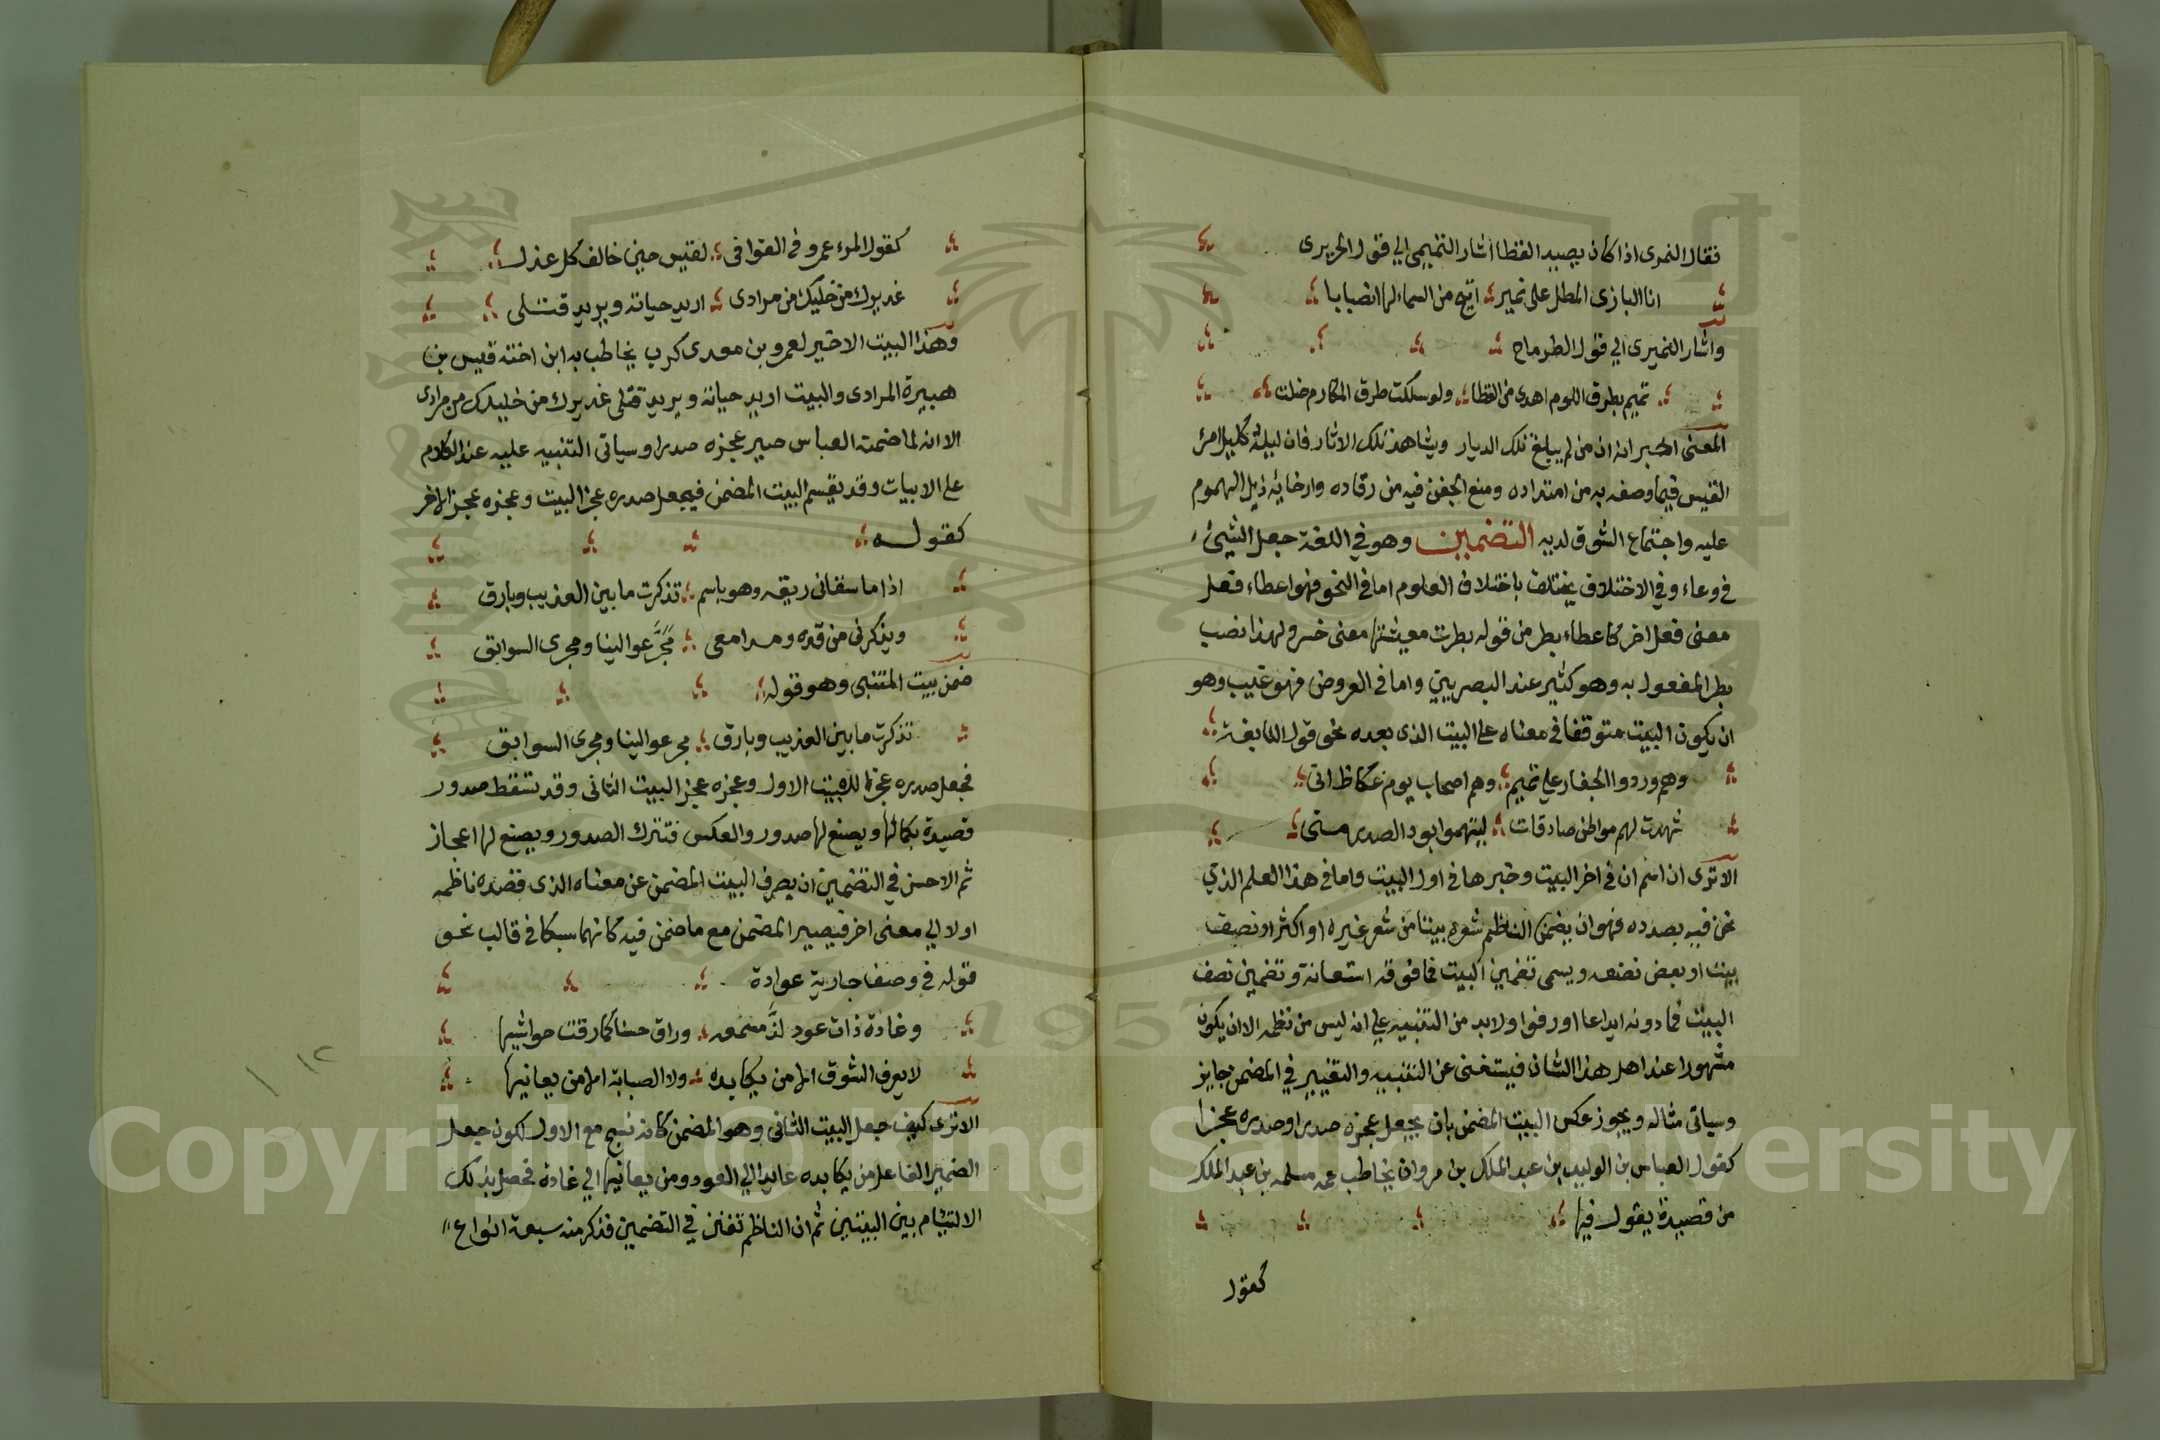 فقال النمرى اذا كان يصيد القطا اشار التميمى الي قول الحريرى
انا البازى المطل على نمير اتيح من السماء لها انصبابا
واشار النميرى الي قول الطرماح
تميم بطرق اللوم اهدى من القطا ولو سلكت طرق المكارم ضلت
المعنى اخبر انه ان من لم يبلغ تلك الديار ويشاهد تلك الاثار فان ليلة كليل امرئ
القيس فيما وصفه به من امتداده ومنع الجفن فيه من رقاده وارخائه ذيل الهموم
عليه واجتماع الشوق لديه التضمين وهو في اللغة جعل الشيئ
في وعاء وفي الاختلاف يختلف باختلاف العلوم اما في النحو فهو اعطاء فعل
معنى فعل اخر كاعطاء بطر من قوله بطرت معيشتها معنى خسر ولهذا نصب
بطر المفعول به وهو كثير عند البصريين واما في العروض فهو عيب وهو
ان يكون البيت متوقفا في معناه على البيت الذى بعده نحو قول النابغة
وهم وردوا الجفار على تميم وهم اصحاب يوم عكاظ انى
شهدت لهم مواطن صادقات ليتهموا بود الصدر منى
الا ترى ان اسم ان في اخر البيت وخبرها في اول البيت واما في هذا العلم الذي
نحن فيه بصدده فهو ان يضمن الناظم شعره بيتا من شعر غيره او اكثر او نصف
بيت او بعض نصفه ويسمى تضمين البيت فما فوقه استعانة وتضمين نصف
البيت فما دونه ايداعا او رفوا ولا بد من التنبيه على انه ليس من نظمه الا ان يكون
مشهورا عند اهل هذا الشان فيستغنى عن التنبيه والتغيير في المضمن جايز
وسياتى مثاله ويجوز عكس البيت المضمن بان يجعل عجزه صدرا وصدره عجزا
كقول العباس بن الوليد بن عبد الملك بن مروان يخاطب عمه مسلمه بن عبد الملك
من قصيدة يقول فيها
كقول
كقول المرء عمرو في القوافى لقيس حين خالف كل عذل
غديرك من خليلك من مرادى اريد حياته ويريد قتلى
وهذا البيت الاخير لعمرو بن معدى كرب يخاطب به ابن اخته قيس بن
هبيرة المرادى والبيت اريد حياته ويريد قتلى غديرك من خليلك من مرادى
الا انه لما ضمنه العباس صير عجزه صدرا وسياتى التنبيه عليه عند الكلام
على الابيات وقد يقسم البيت المضمن فيجعل صدره عجز البيت وعجزه عجز الاخر
كقوله
اذا ما سقانى ريقه وهو باسم تذكرت ما بين العذيب وبارق
ويذكرنى من قده ومدامعى مَجَرَّ عوالينا ومجرى السوابق
ضمن بيت المتنبى وهو قوله
تذكرت ما بين العذيب وبارق مجر عوالينا ومجرى السوابق
فجعل صدره عجزا للبيت الاول وعجزه عجز البيت الثانى وقد تسقط صدور
قصيدة بكمالها ويصنع لها صدور والعكس فتترك الصدور ويصنع لها اعجاز
ثم الاحسن في التضمين ان يصرف البيت المضمن عن معناه الذى قصده ناظمه
اولا الي معنى اخر فيصير المضمن مع ما ضمن فيه كانهما سبكا في قالب نحو
قوله في وصف جارية عوادة
وغادة ذات عود لذ مسمعه وراق حسنا كما رقت حواشيها
لا يعرف الشوق الا من يكابده ولا الصبابة الا من يعانيها
الا ترى كيف جعل البيت الثانى وهو المضمن كانه نسج مع الاول لكون جعل
الضمير الفاعل من يكابده عايد الي العود ومن يعانيها الي غادة فحصل بذلك
الالتيام بين البيتين ثم ان الناظم تفنن في التضمين فذكر منه سبعة انواع
١٢
Copyright © King Saud University
1957